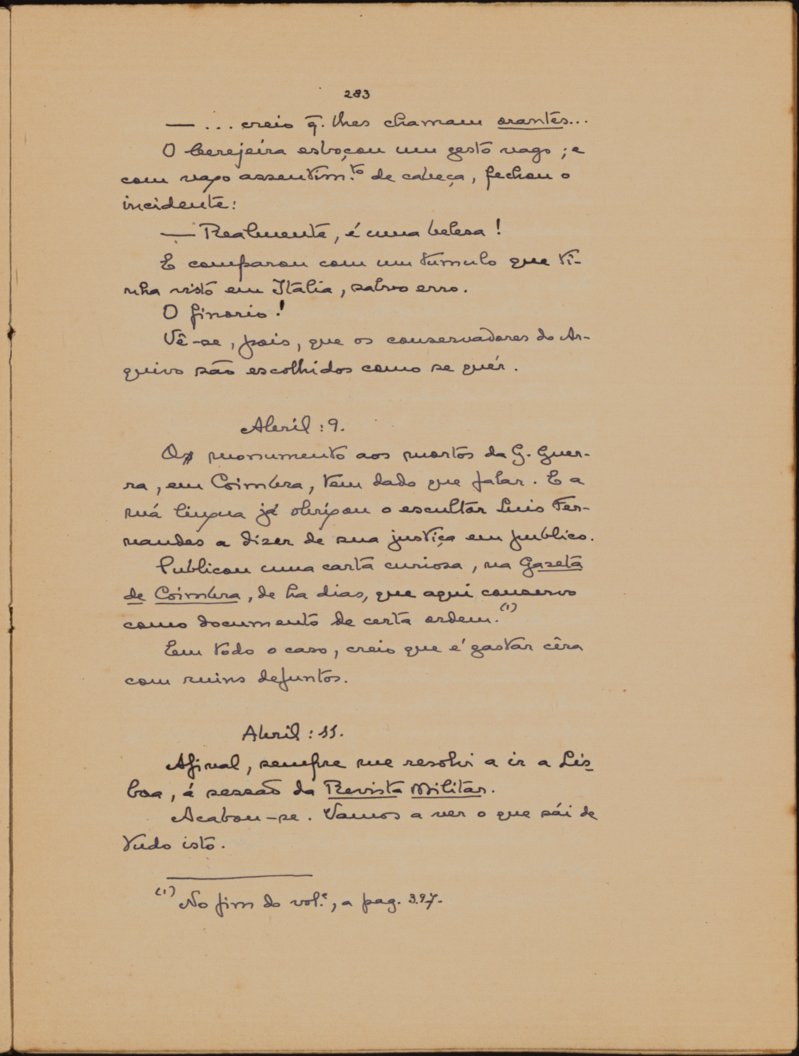 283
— ... creio q. lhes chamam orantes...
O Cerejeira esboçou um gesto vago; e
com vago assentim.to de cabeça, fechou o
incidente:
— Realmente, é uma belesa!
E comparou com um tumulo que ti-
nha visto em Italia, salvo erro.
O finorio!
Vê-se, pois, que os conservadores do Ar-
quivo são escolhidos como se quér.
Abril: 9.
O monumento aos mortos da G. Guer-
ra, em Coimbra, tem dado que falar. E a
má lingua já obrigou o escultor Luis Fer-
nandes a dizer de sua justiça em publico.
Publicou uma carta curiosa, na Gazeta
de Coimbra, de ha dias, que aqui conservo
como documento de certa ordem.(1)
Em todo o caso, creio que é gastar cêra
com ruins defuntos.
Abril: 11.
Afinal, sempre me resolvi a ir a Lis-
boa, á sessão da Revista Militar.
Acabou-se. Vamos a ver o que sái de
tudo isto.
(1) No fim do vol.e, a pag. 397.